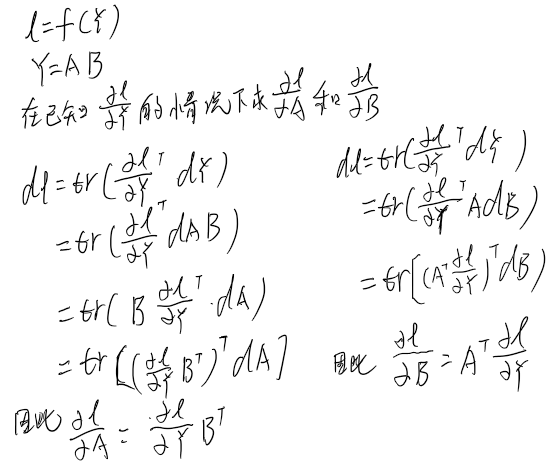 l=f(Y)
Y=AB
在已知 ∂l/∂Y 的情况下求 ∂l/∂A 和 ∂l/∂B
dl=tr(∂l/∂Y^T dY)
=tr(∂l/∂Y^T dAB)
=tr(B ∂l/∂Y^T · dA)
=tr[(∂l/∂Y B^T)^T dA]
因此 ∂l/∂A = ∂l/∂Y B^T
dl=tr(∂l/∂Y^T dY)
=tr(∂l/∂Y^T AdB)
=tr[(A^T ∂l/∂Y)^T dB)
因此 ∂l/∂B = A^T ∂l/∂Y